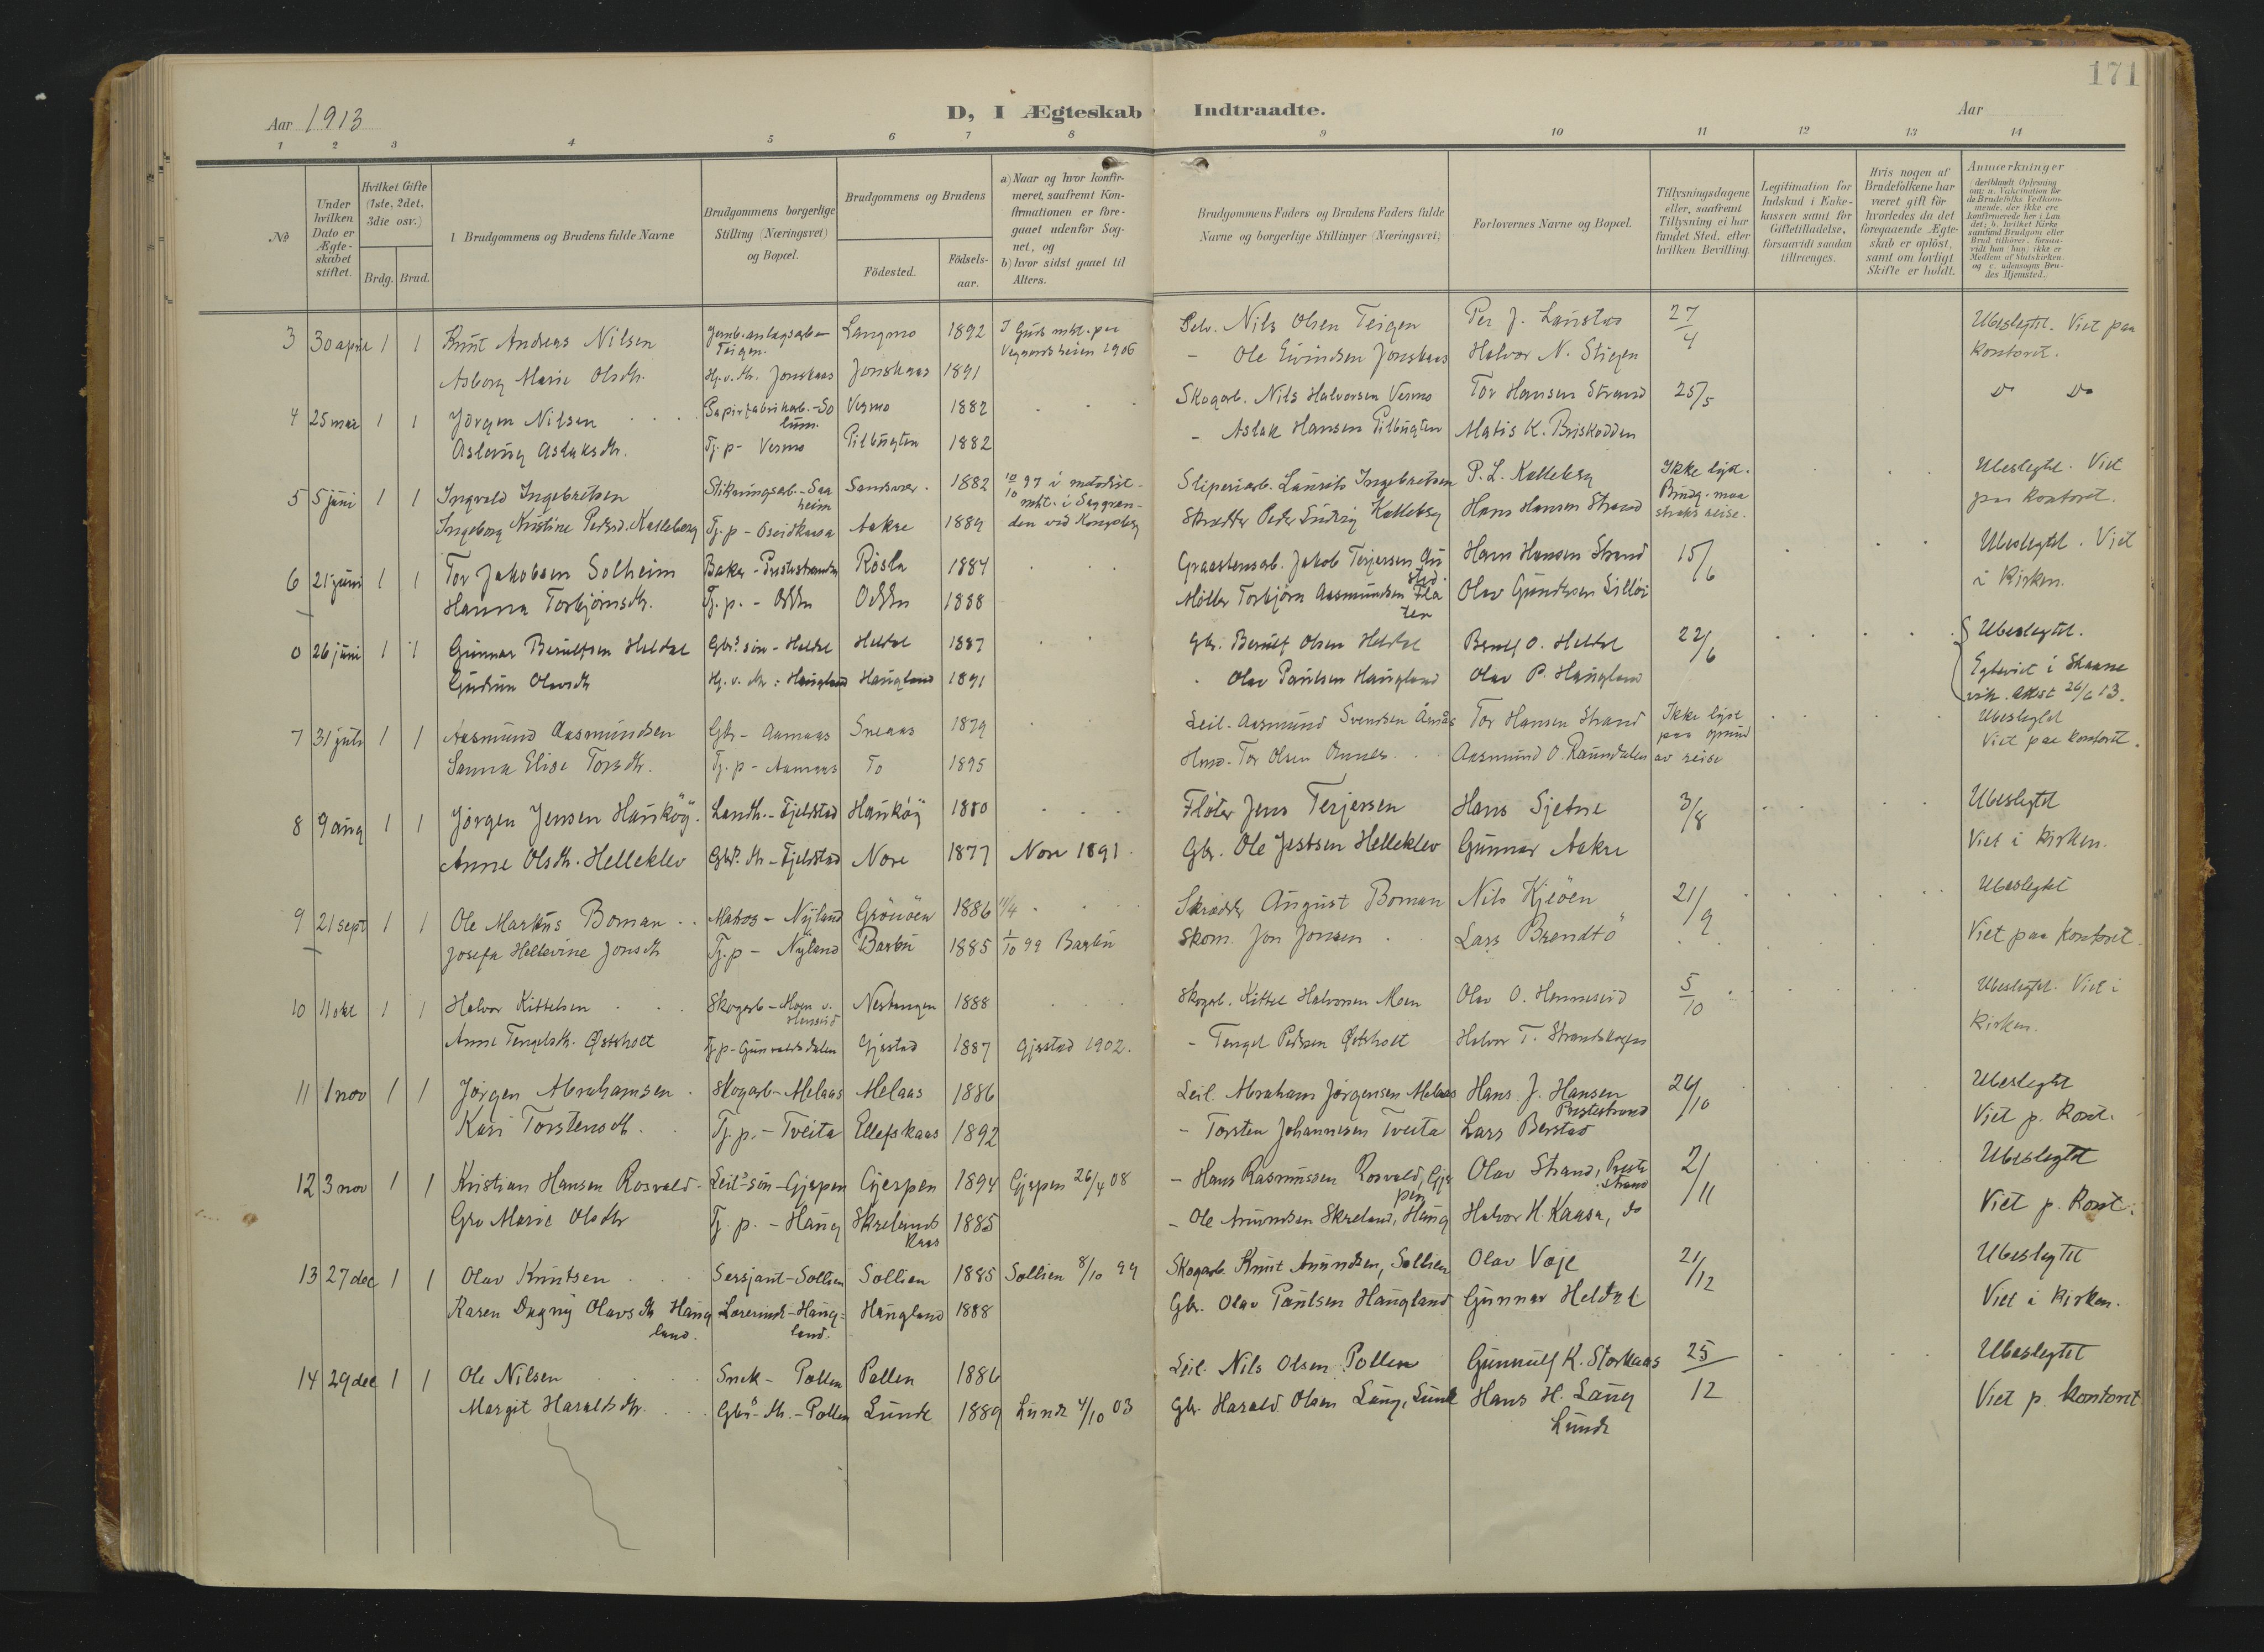 171
Aar 1913
D, I Ægteskab Indtraadte.
Aar
1 2 3 4 5 6 7 8 9 10 11 12 13 14
No
Under hvilken Dato er Ægteskabet stiftet.
Hvilket Gifte (1ste, 2det, 3die osv.)
Brdg. Brud.
Brudgommens og Brudens fulde Navne
Brudgommens borgerlige Stilling (Næringsvei) og Bopæl.
Brudgommens og Brudens
Födested.
Födselsaar.
a) Naar og hvor konfirmeret, saafremt Konfirmationen er foregaaet udenfor Sognet, og
b) hvor sidst gaaet til Alters.
Brudgommens Faders og Brudens Faders fulde Navne og borgerlige Stillinger (Næringsvei)
Forlovernes Navne og Bopæl.
Tillysningsdagene eller, saafremt Tillysning ei har fundet Sted, efter hvilken Bevilling.
Legitimation for Indskud i Enkekassen samt for Giftetilladelse, forsaavidt saadan tiltrænges.
Hvis nogen af Brudefolkene har været gift för hvorledes da det foregaaende Ægteskab er oplöst, samt om lovligt Skifte er holdt.
Anmærkninger
3 30 april 1 1 Knut Andreas Nilsen Jernb.anlagsarb - Teigen. Langmo 1892 1906 Selv. Nils Olsen Teigen Per J. Lanstad 27/4 Ubeslegtet. Viet paa
Asborg Marie Olsdtr. Hj.v. dtr. Jonskaas Jonskaas 1891 - Ole Eivindsen Jonskaas Halvor N. Stigen kontoret.
4 25 mai 1 1 Jörgen Nilsen Papirfabrikarb. - Solum. Vesmo 1882 Skogarb. Nils Halvorsen Vesmo Tor Hansen Strand 25/5 do do
Aslaug Aslaksdtr. Tj. p - Vesmo Pilbugten 1882 - Aslak Hansen Pilbugten Matis K. Briskodden
5 5 juni 1 1 Ingvald Ingebretsen Stikningsarb. - Saaheim Sandsvær. 1882 10/10 97 i metodist- Sliperiarb. Laurits Ingebretsen P. L. Kalleberg Ikke lyst. Ubeslegtet. Viet
Ingeborg Kristine Pedersd. Kalleberg Tj. p - Aakre 1889 mht. i Saggrenden ved Kongsberg Skrædder Peder Ludvig Kalleberg Hans Hansen Strand Brudg. maa straks reise. paa kontoret.
6 21 juni 1 1 Tor Jakobsen Solheim Baker - Prestestranden Rösla 1884 Graastensarb. Jakob Terjersen Hans Hansen Strand 15/6 Ubeslegtet. Viet
Hanna Torbjörnsdtr. Tj. p. - Odden Odden 1888 Möller Torbjörn Aasmundsen Flaten Olav Gundersen i Kirken.
0 26 juni 1 1 Gunnar Berulfsen Heldal Gbr's sön - Heldal Heldal 1887 Gbr. Berulf Olsen Heldal Berulf O. Heldal 22/6 Ubeslegtet.
Gudrun Olavsdtr Hj. v. dtr: Haugland Haugland 1891 Olav Paulsen Haugland Olav P. Haugland Egteviet i Skaanevik. Attest 26/6 13.
7 31 juli 1 1 Aasmund Aasmundsen Gbr - Aamaas Sneaas 1879 Leil. Aasmund Svendsen Åmås Tor Hansen Strand Ikke lyst Ubeslegtet
Sanna Elise Torsdtr. Tj. p - Aamaas To 1895 Hmd. Tor Olsen Aasmund O. Raundalen paa grund av reise Viet paa kontoret.
8 9 aug 1 1 Jörgen Jensen Hauköy. Landh. - Fjeldstad Hauköy 1880 Flöter Jens Terjersen Hans Sjetne 3/8 Ubeslegtet
Anne Olsdtr. Helleklev Gbr's. dtr - Fjeldstad Nore 1877 Nore 1891. Gbr. Ole Jostsen Helleklev Gunnar Aakre Viet i kirken.
9 21 sept 1 1 Ole Markus Boman Matros - Nyland Grönöen 1886 Skrædder August Boman Nils Kjeöen 21/9 Ubeslegtet
Josefa Hellevine Jonsdtr Tj. p - Nyland Barbu 1885 1/10 99 Barbu Skom. Jon Jonsen Lars Brendtö Viet paa kontoret.
10 11 okt 1 1 Halvor Kittelsen Skogarb - Moen v. Henseid Nestangen 1888 Skogarb. Kittel Halvorsen Moen Olav O. Henneseid 5/10 Ubeslegtet. Viet i
Anne Tengelsdtr. Østerholt Tj. p - Gunvaldsdalen Gjerstad 1887 Gjerstad 1902. - Tengel Pedersen Østerholt Halvor T. Strandskogen kirken.
11 1 nov 1 1 Jörgen Abrahamsen Skogarb - Melaas Melaas 1886 Leil. Abraham Jörgensen Melaas Hans J. Hansen Prestestrand 26/10 Ubeslegtet
Kari Torstensdtr. Tj. p. - Tveita Ellefskaas 1892 - Torsten Johannesen Tveita Lars Berstad Viet p. Kont.
12 3 nov 1 1 Kristian Hansen Rosvald Leil's sön - Gjerpen Gjerpen 1894 Gjerpen 26/4 08 - Hans Rasmussen Rosvald, Gjerpen Olav Strand, Prestestrand 2/11 Ubeslegtet
Gro Marie Olsdtr Tj. p. - Haug Skrelandskaas 1885 - Ole Anundsen Skreland, Haug Halvor H. Kaasa, do Viet p. Kont.
13 27 dec 1 1 Olav Knutsen Sersjant - Sollien Sollien 1885 Sollien 8/10 99 Skogarb. Knut Anundsen, Sollien Olav Vaje 21/12 Ubeslegtet
Karen Dagny Olavsdtr Haugland. Lærerinde - Haugland. Haugland 1888 Gbr. Olav Paulsen Haugland Gunnar Heldal Viet i Kirken.
14 29 dec 1 1 Ole Nilsen Snek - Pollen Pollen 1886 Leil. Nils Olsen Pollen Gunnulf K. Storkaas 25/12 Ubeslegtet
Margit Haraldsdtr. Gbr's dtr. - Pollen Lunde 1889 Lunde 4/10 03 Gbr. Harald Olsen Laug, Lunde Hans H. Laug Lunde Viet p. kontoret